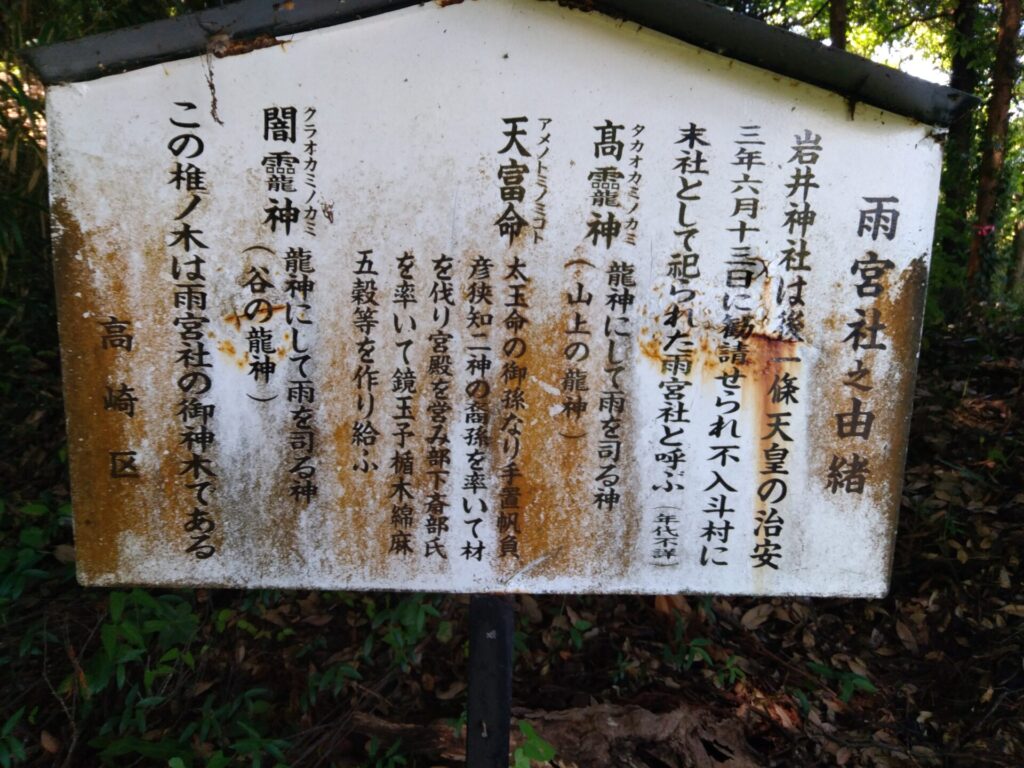 雨宮社之由緒
岩井神社は後一條天皇の治安
三年六月十三日に勧請せられ不入斗村に
末社として祀られた雨宮社と呼ぶ（年代不詳）
タカオカミノカミ
髙龗神 龍神にして雨を司る神
（山上の龍神）
アメノトミノミコト
天富命 太玉命の御孫なり手置帆負
彦狭知二神の裔孫を率いて材
を伐り宮殿を営み部下斎部氏
を率いて鏡玉予楯木綿麻
五穀等を作り給ふ
クラオカミノカミ
闇龗神 龍神にして雨を司る神
（谷の龍神）
この椎ノ木は雨宮社の御神木である
高崎区